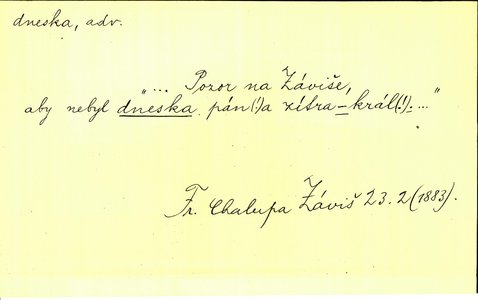 dneska, adv.
"... Pozor na Záviše,
aby nebyl dneska pán(!)a zítra – král(!). ..."
Fr. Chalupa Záviš 23. 2 (1883).